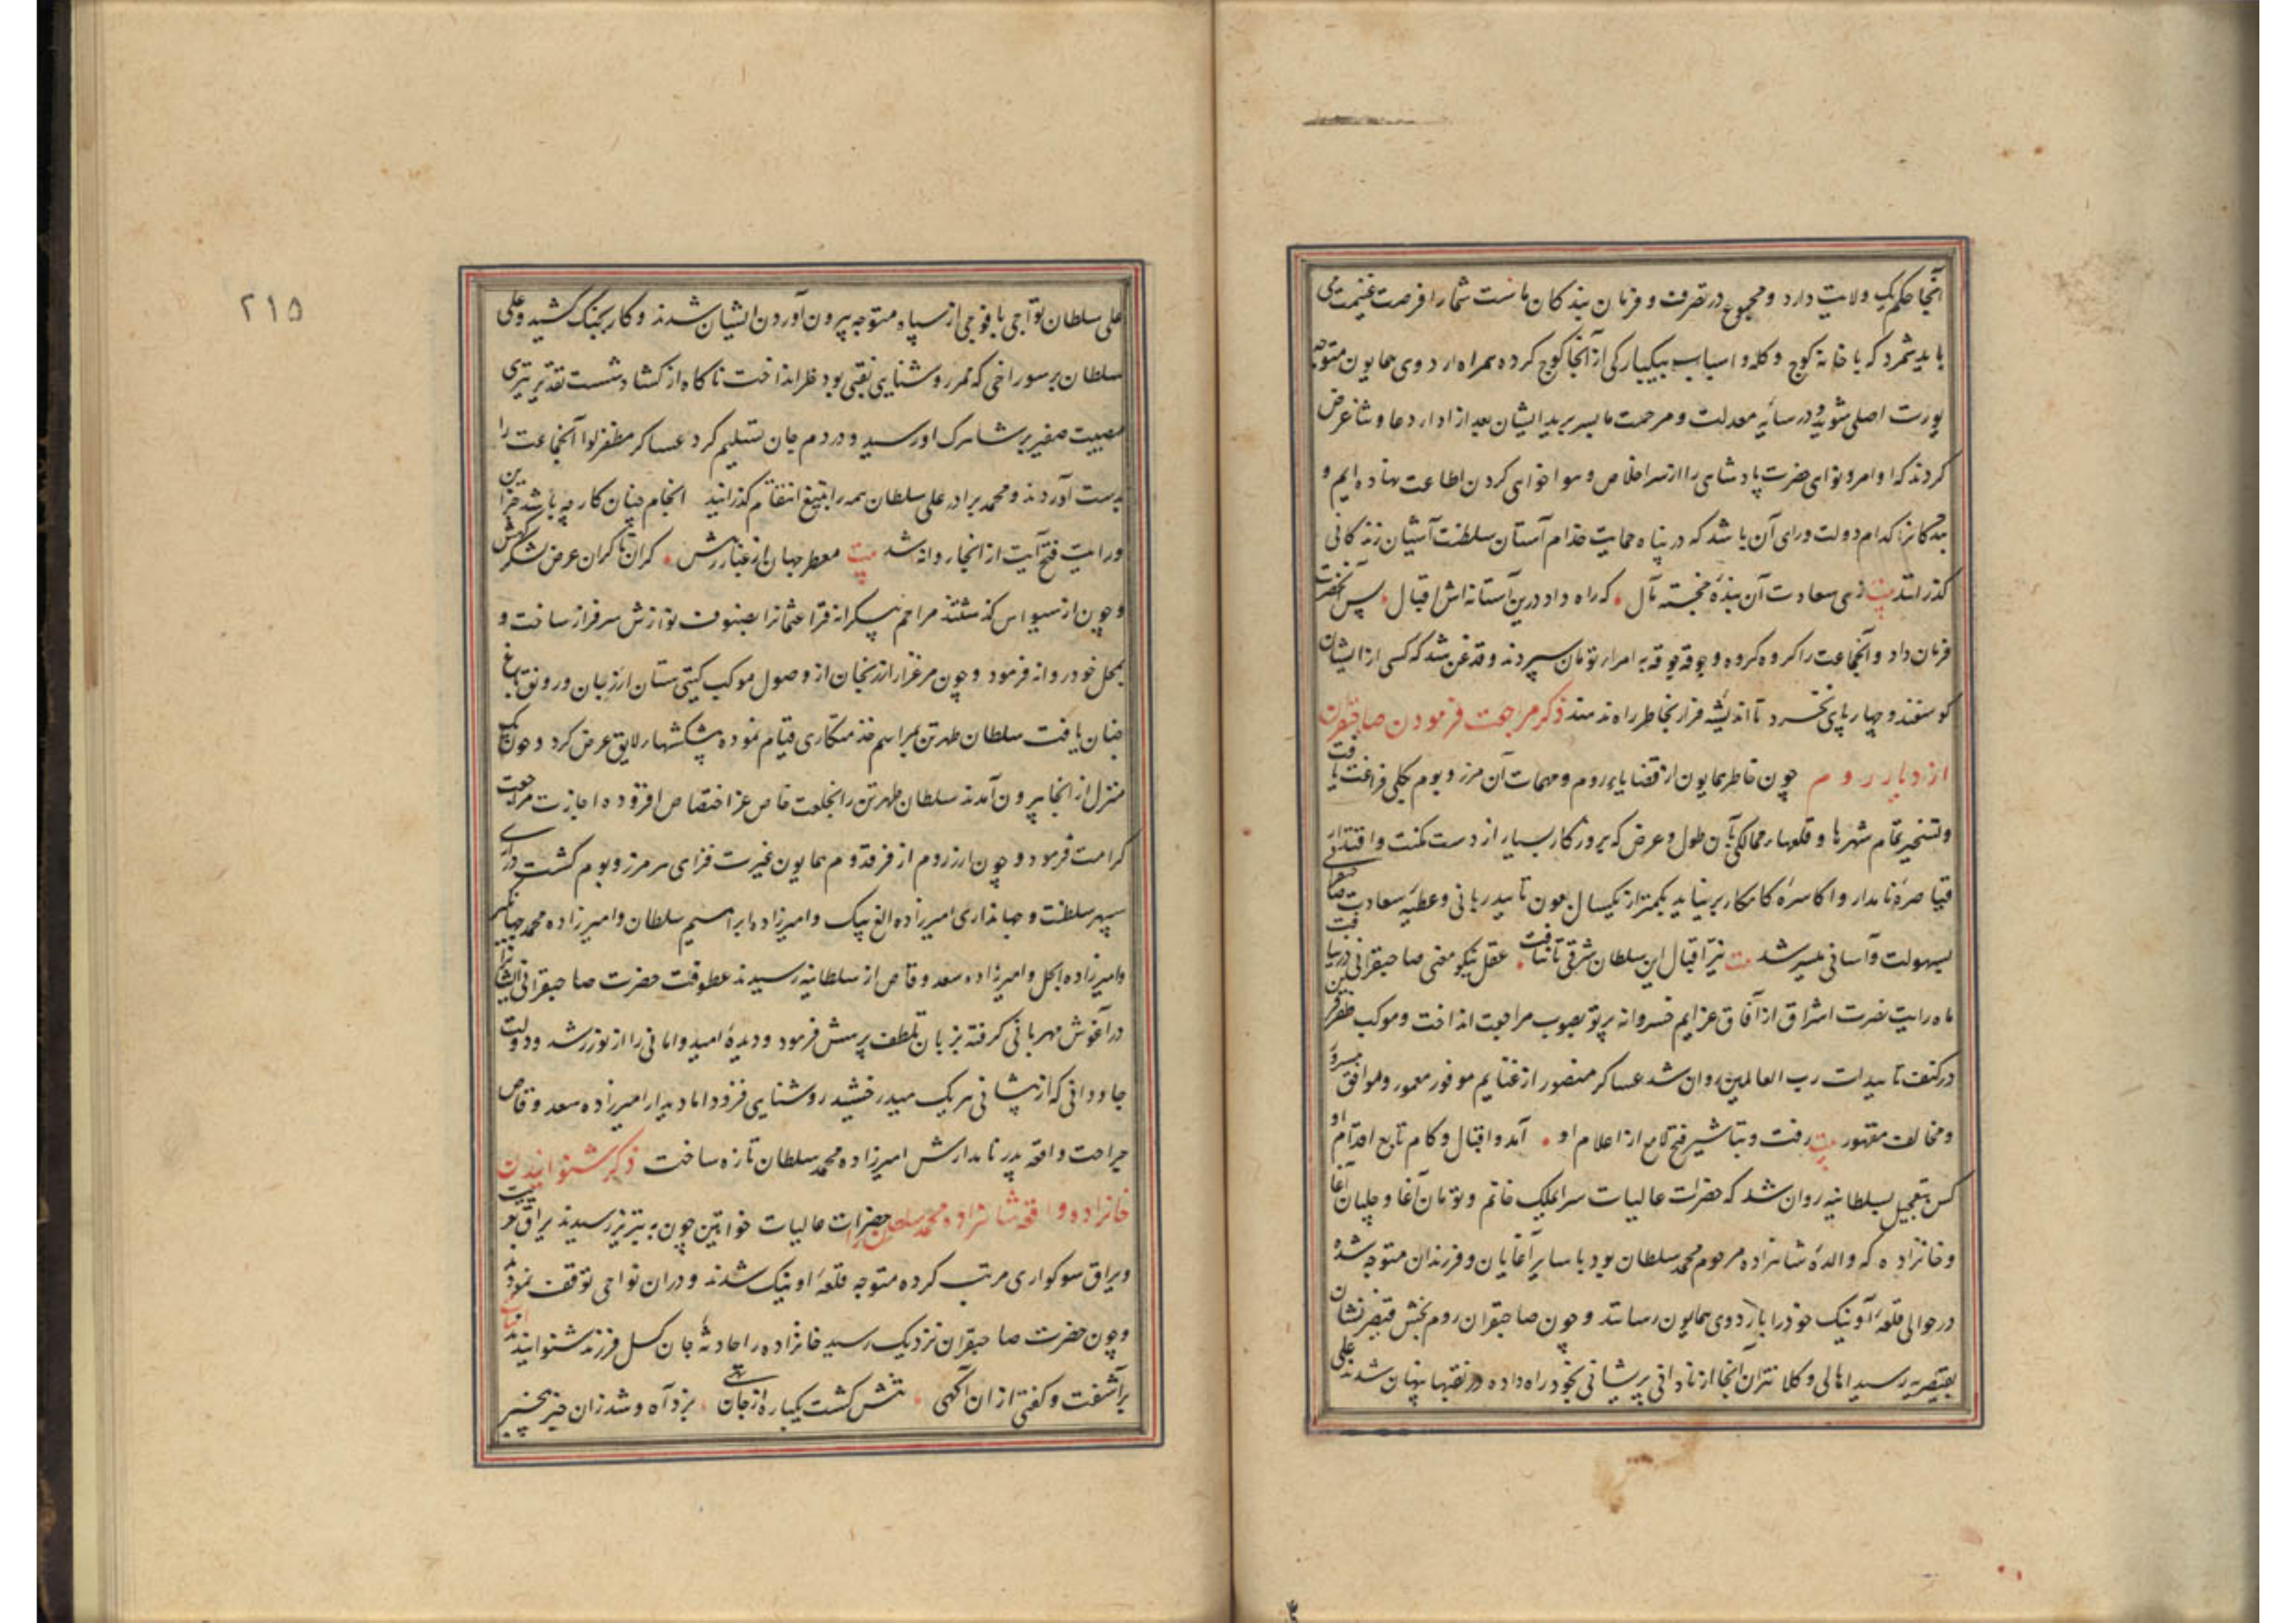 آنجا حکم یک ولایت دارد و مجموع در تصرف و فرمان بندکان ماست شما را فرصت غنیمت می
باید شمرد که با خانه کوچ و کله و اسباب بیکبارکی از آنجا کوچ کرده همراه اردوی همایون متوجه
یورت اصلی شوید و در سایه معدلت و مرحمت ما بسر برید ایشان بعد از ادار دعا و ثنا عرض
کردند که اوامر و نواهی حضرت پادشاهی را از سر اخلاص و هواخواهی کردن اطاعت نهاده ایم و
بندکانرا کدام دولت ورای آن باشد که در پناه حمایت خدام آستان سلطنت آشیان زندکانی
کذرانند بیت زهی سعادت آن بندهٔ خجسته مآل که راه داد درین آستانه اش اقبال پس آنحضرت
فرمان داد و آنجماعت را کروه کروه و جوقه جوقه به امرار تومان سپردند و قدغن شد که کسی از ایشان
کوسفند و چهارپای نخرد تا اندیشه فرار بخاطر راه ندهند ذکر مراجعت فرمودن صاحبقران
از دیار روم چون خاطر همایون از قضایای روم و مهمات آن مرز و بوم بکلی فراغت یافت
و تسخیر تمام شهرها و قلعها ر ممالکی بآن طول و عرض که بروزکار بسیار از دست مکنت و اقتدار
قیاصرهٔ نامدار و اکاسرهٔ کامکار برنیاید بکمتر از یکسال بعون تایید ربانی و عطیه سعادت صاحبقرانی
بسهولت و آسانی میسر شد بیت نیر اقبال این سلطان شرقی تا نتافت عقل نیکو معنی صاحبقرانی در نیافت
ماه رایت نصرت اشراق از آفاق عزایم خسروانه پرتو بصوب مراجعت انداخت و موکب ظفر قرین
در کنف تاییدات رب العالمین روان شد عساکر منصور از غنایم موفور معمور و موافق مسرور
و مخالف مقهور بیت رفت و تباشیر فتح لامع از اعلام او آمد و اقبال و کام تابع اقدام او
کس بتعجیل بسلطانیه روان شد که حضرات عالیات سرایملک خانم و تومان آغا و چلپان آغا
و خانزاده که والدهٔ شاهزاده مرحوم محمد سلطان بود با سایر آغایان و فرزندان متوجه شده
در حوالی قلعه آونیک خود را باردوی همایون رسانند و چون صاحبقران روم بخش قیصر نشان
بقیصریه رسید اهالی و کلانتران آنجا از نادانی پریشانی بخود راه داده در نقبها پنهان شدند علی
۲۱۵
علی سلطان تواجی با فوجی از سپاه متوجه بیرون آوردن ایشان شدند و کار بجنک کشید و علی
سلطان بر سوراخی که ممر روشنایی نقبی بود نظر انداخت ناکاه از کشاد شست تقدیر تیری
مصیبت صفیر بر شاهرک او رسید و در دم جان تسلیم کرد عساکر مظفر لوا آنجماعت را
بدست آوردند و محمد برادر علی سلطان همه را بتیغ انتقام کذرانید انجام چنان کار چه باشد جز این
و رایت فتح آیت از انجا روانه شد بیت معطر جهان از غبار رهش کران تا کران عرض لشکرکهش
و چون از سیواس کذشتند مراحم بیکرانه قرا عثمانرا بصنوف نوازش سرفراز ساخت و
بمحل خود روانه فرمود و چون مرغزار ارزنجان از وصول موکب کیتی ستان ارزنجان و رونق باغ
جنان یافت سلطان طهرتن بمراسم خدمتکاری قیام نموده پیشکشهار لایق عرض کرد و چون یک
منزل از انجا بیرون آمدند سلطان طهرتن را بخلعت خاص عز اختصاص افزوده اجازت مراجعت
کرامت فرمود و چون ارزروم از فر قدوم همایون غیرت فزای هر مرز و بوم کشت دراری
سپهر سلطنت و جهانداری امیرزاده الغ بیک و امیرزاده ابراهیم سلطان و امیرزاده محمد جهانکیر
و امیرزاده ایجل و امیرزاده سعد وقاص از سلطانیه رسیدند عطوفت حضرت صاحبقرانی ایشانرا
در آغوش مهربانی کرفته بزبان تلطف پرسش فرمود و دیدهٔ امید و امانی را از نور رشد و دولت
جاودانی که از پیشانی هریک میدرخشید روشنایی فزود اما دیدار امیرزاده سعد وقاص
جراحت واقعه پدر نامدارش امیرزاده محمد سلطان تازه ساخت ذکر شنوانیدن
خانزاده واقعه شاهزاده محمد سلطان را حضرات عالیات خواتین چون به تبریز رسیدند یراق تعزیت
و یراق سوکواری مرتب کرده متوجه قلعه اونیک شدند و دران نواحی توقف نمودند
و چون حضرت صاحبقران نزدیک رسید خانزاده را حادثه جان کسل فرزند شنوانیدند ابیات
برآشفت و کفتی از ان آکهی تنش کشت یکباره از جان تهی بزد آه و شد زان خبر بیخبر